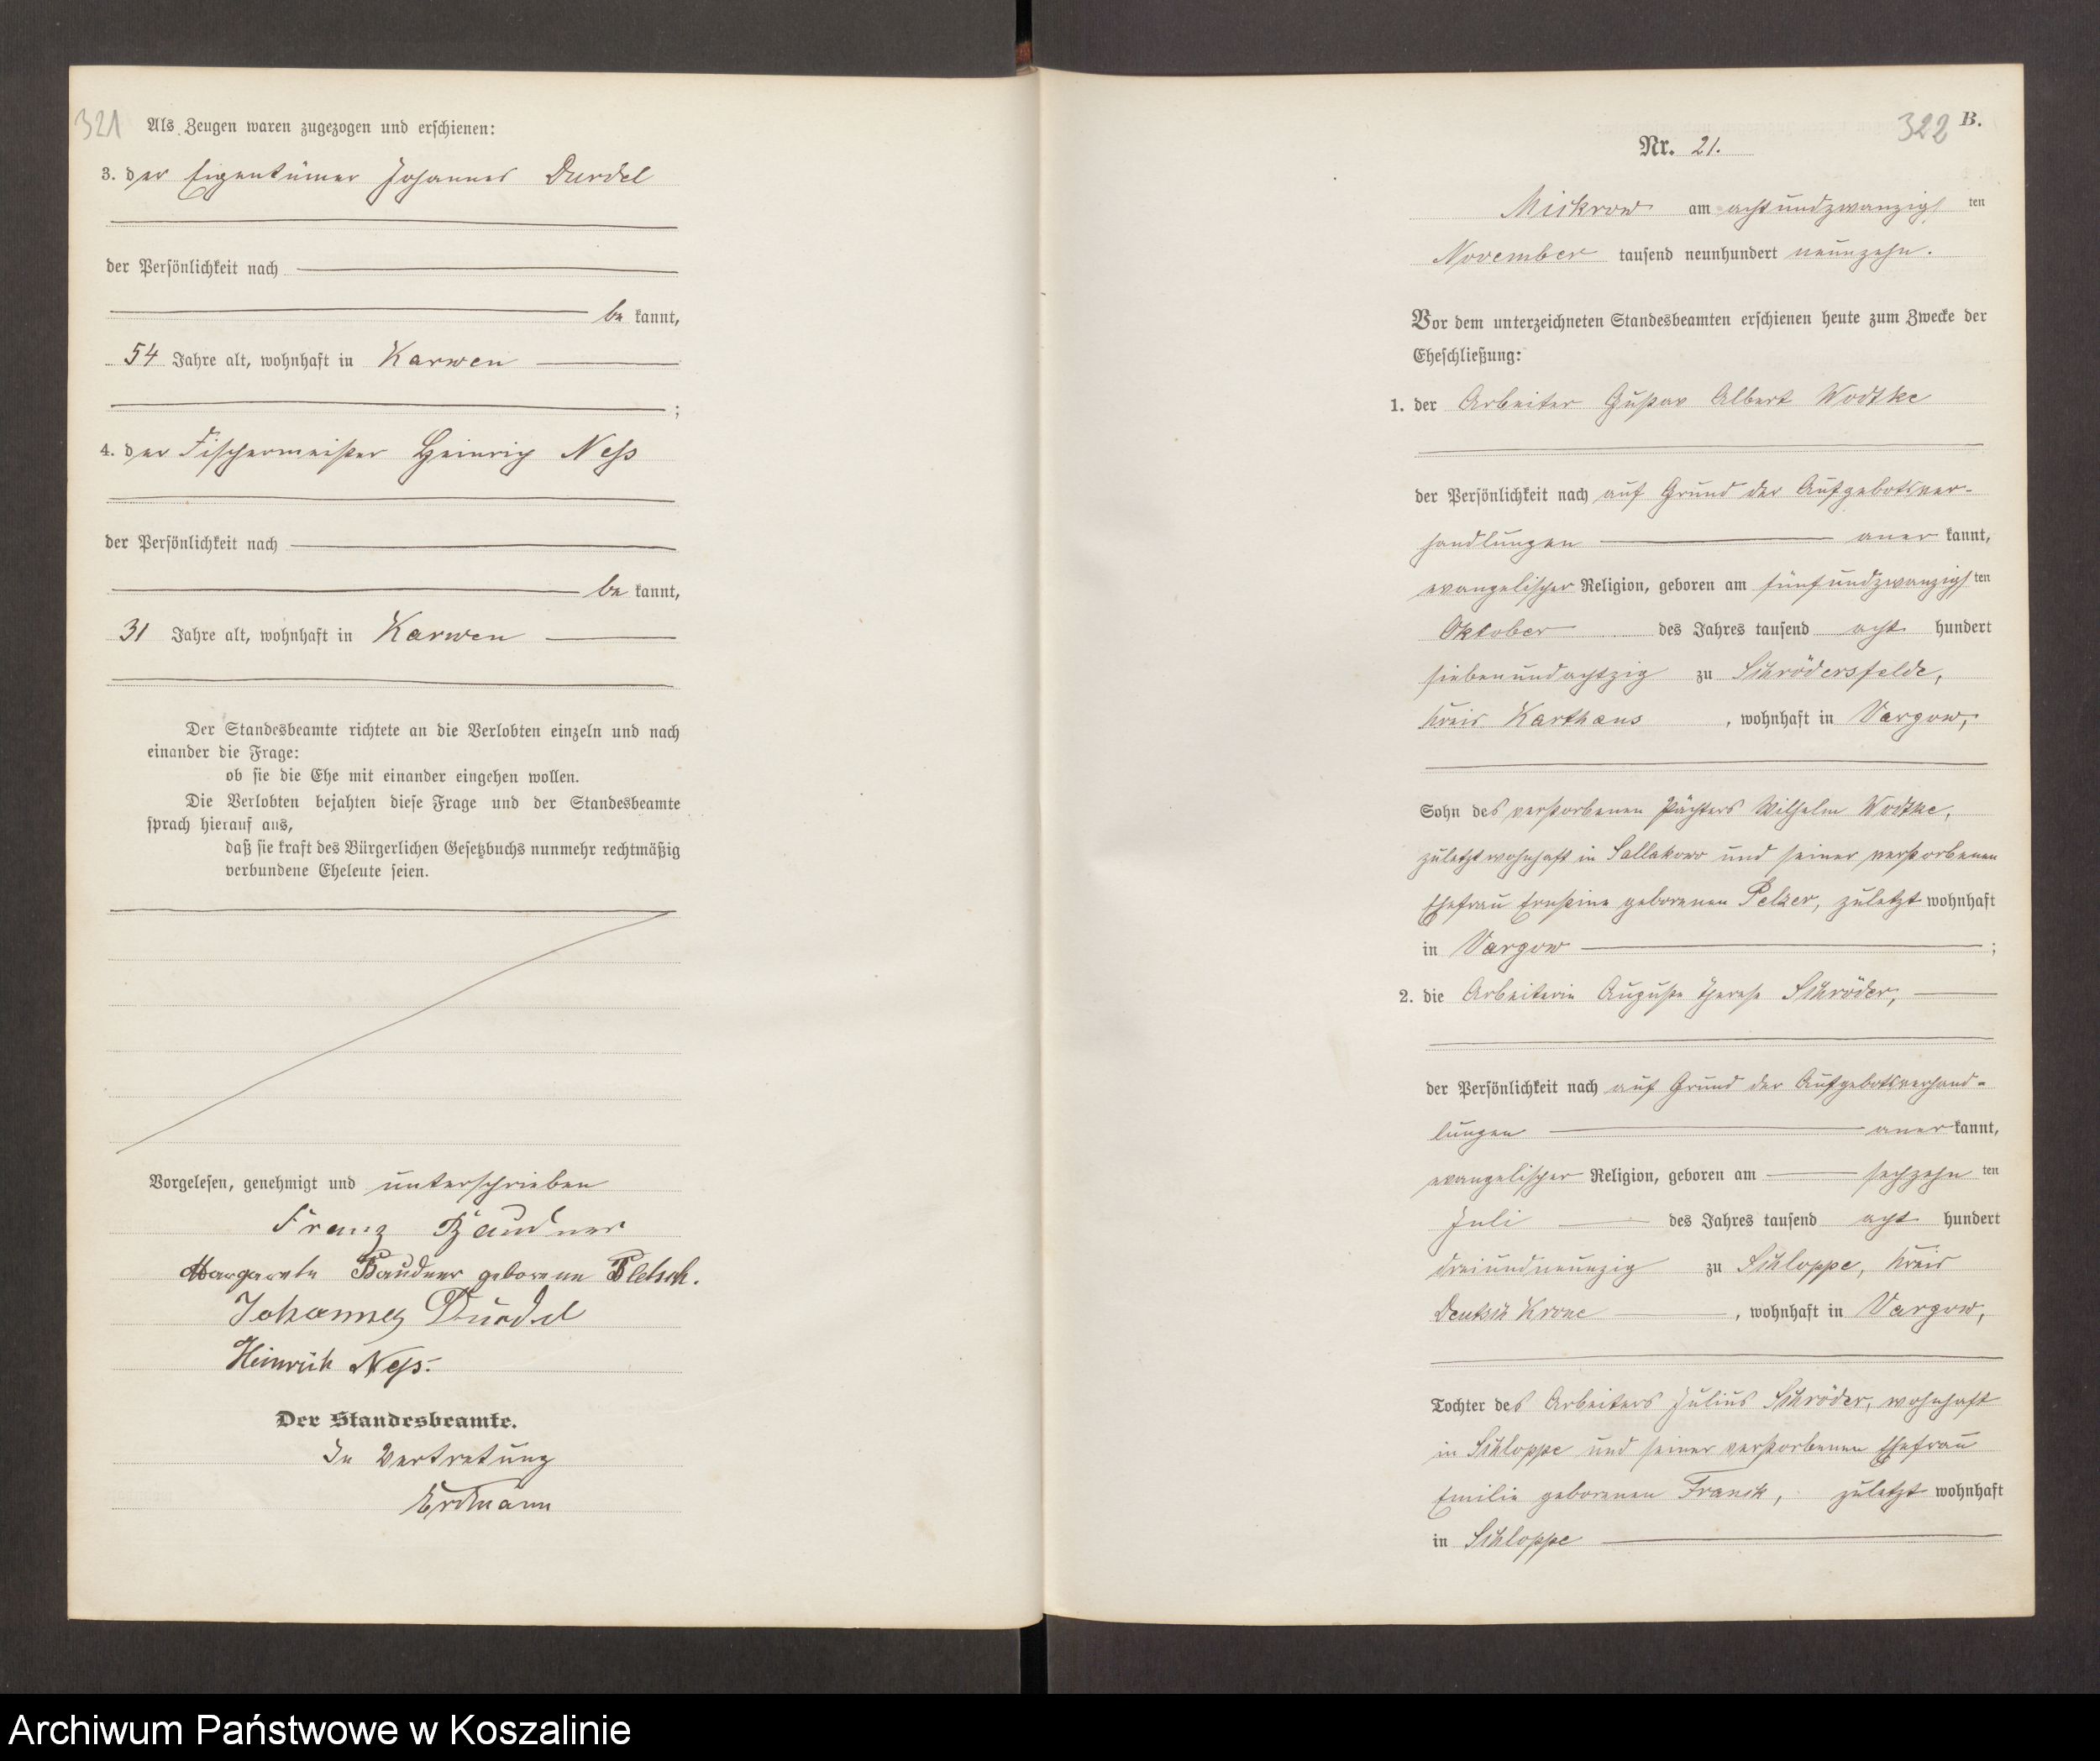 321
Als Zeugen waren zugezogen und erschienen:
3. der Eigentümer Johannes Durdel
der Persönlichkeit nach
be kannt,
54 Jahre alt, wohnhaft in Karwen
;
4. der Fischermeister Heinrich Ness
der Persönlichkeit nach
be kannt,
31 Jahre alt, wohnhaft in Karwen
Der Standesbeamte richtete an die Verlobten einzeln und nach
einander die Frage:
ob sie die Ehe mit einander eingehen wollen.
Die Verlobten bejahten diese Frage und der Standesbeamte
sprach hierauf aus,
daß sie kraft des Bürgerlichen Gesetzbuchs nunmehr rechtmäßig
verbundene Eheleute seien.
Vorgelesen, genehmigt und unterschrieben
Franz Baudner
Margarete Baudner geborene Pletsch.
Johannes Durdel
Heinrich Ness.
Der Standesbeamte.
In Vertretung
Erdmann
322 B.
Nr. 21.
Mickrow am achtundzwanzigsten
November tausend neunhundert neunzehn.
Vor dem unterzeichneten Standesbeamten erschienen heute zum Zwecke der
Eheschließung:
1. der Arbeiter Gustav Albert Wodtke
der Persönlichkeit nach auf Grund der Aufgebotsver-
handlungen aner kannt,
evangelischer Religion, geboren am fünfundzwanzigsten
Oktober des Jahres tausend acht hundert
siebenundachtzig zu Schrödersfelde,
Kreis Karthaus, wohnhaft in Vargow,
Sohn des verstorbenen Pächters Wilhelm Wodtke,
zuletzt wohnhaft in Sallakowo und seiner verstorbenen
Ehefrau Ernstine geborenen Pelzer, zuletzt wohnhaft
in Vargow ;
2. die Arbeiterin Auguste Therese Schröder,
der Persönlichkeit nach auf Grund der Aufgebotsverhand-
lungen aner kannt,
evangelischer Religion, geboren am sechzehn ten
Juli des Jahres tausend acht hundert
dreiundneunzig zu Schloppe, Kreis
Deutsch Krone, wohnhaft in Vargow,
Tochter des Arbeiters Julius Schröder, wohnhaft
in Schloppe und seiner verstorbenen Ehefrau
Emilie geborenen Franck, zuletzt wohnhaft
in Schloppe
Archiwum Państwowe w Koszalinie